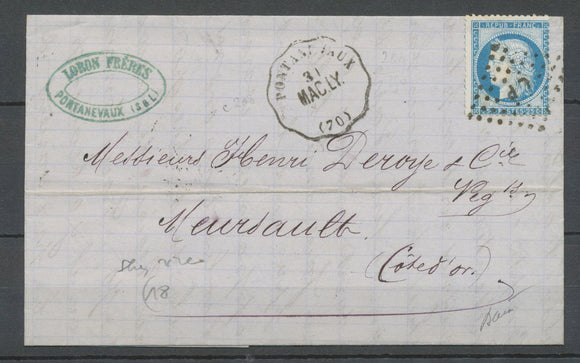 LORON FRÈRES
PONTANEVAUX (S&L)
PONTANEVAUX
31
MAC.LY.
(70)
REPUB. FRANC.
Messieurs Henri Deroye & Cie
Negts
Meursault
(Côte d'or)
18